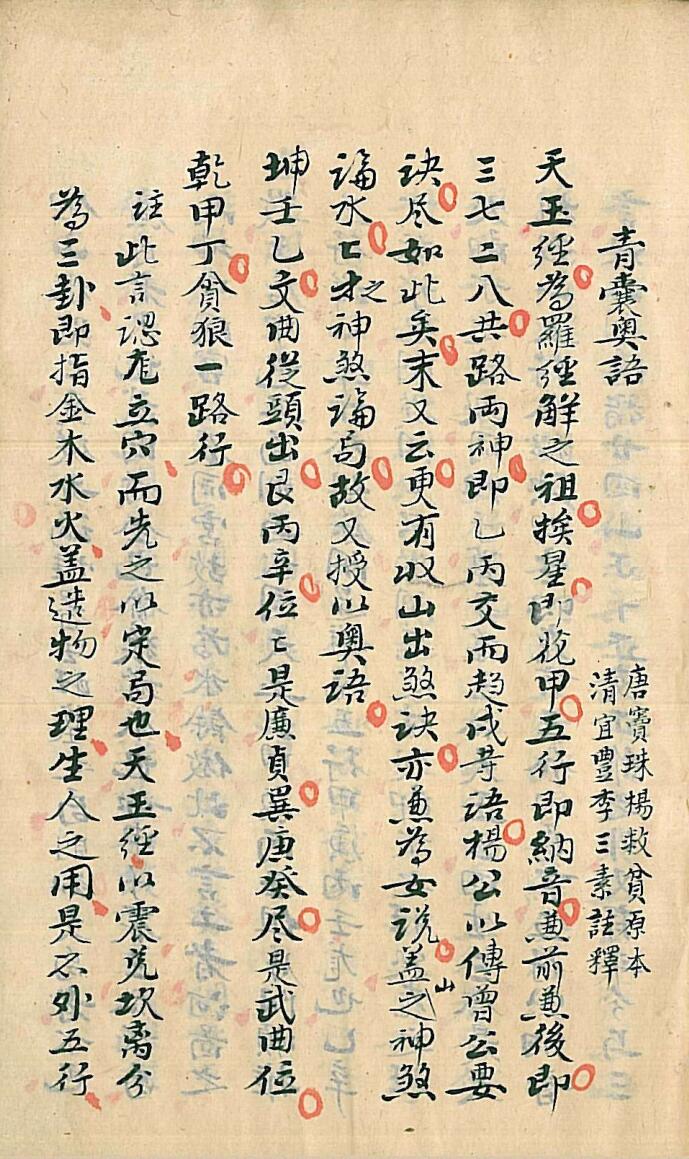 青囊奧語
唐竇珠楊救貧原本
清宜豐李三素註釋
天玉經為羅經解之祖挨星即花甲五行即納音兼前兼後即
三七二八共路両神即乙丙交而趋戌等语楊公以傳曾公要
訣尽如此矣末又云更有収山出煞訣亦兼為女说盖山之神煞
論水亡才之神煞論局故又授以奥语
坤壬乙文曲從頭出艮丙辛位〻是廉貞巽庚癸尽是武曲位
乾甲丁貪狼一路行
註此言認龙立穴而先之以定局也天玉經以震兑坎离分
為三卦即指金木水火盖造物之理生人之用是不外五行